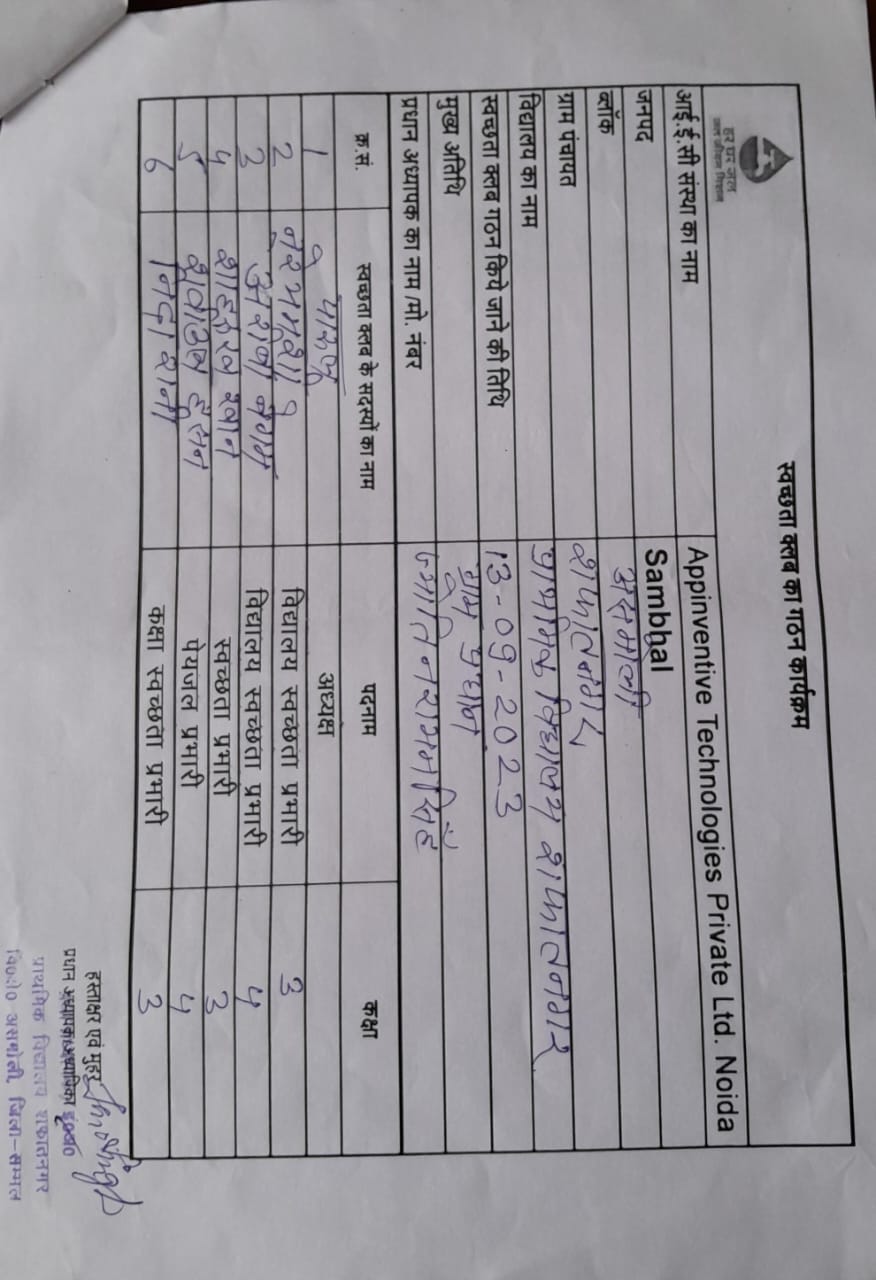 हर घर जल
जल जीवन मिशन
स्वच्छता क्लब का गठन कार्यक्रम
आई.ई.सी संस्था का नाम Appinventive Technologies Private Ltd. Noida
जनपद Sambhal
ब्लॉक असमोली
ग्राम पंचायत शफातनगर
विद्यालय का नाम प्राथमिक विद्यालय शफातनगर
स्वच्छता क्लब गठन किये जाने की तिथि 13-09-2023
मुख्य अतिथि ग्राम प्रधान
प्रधान अध्यापक का नाम /मो. नंबर सिंह
क्र.सं. स्वच्छता क्लब के सदस्यों का नाम पदनाम कक्षा
1 अध्यक्ष
2 विद्यालय स्वच्छता प्रभारी 3
3 बेगम विद्यालय स्वच्छता प्रभारी 4
4 खान स्वच्छता प्रभारी 3
5 हुसैन पेयजल प्रभारी 4
6 कक्षा स्वच्छता प्रभारी 3
हस्ताक्षर एवं मुहर
प्रधान अध्यापक/अध्यापिका
प्राथमिक विद्यालय शफातनगर
वि०ख० असमोली जिला-सम्भल